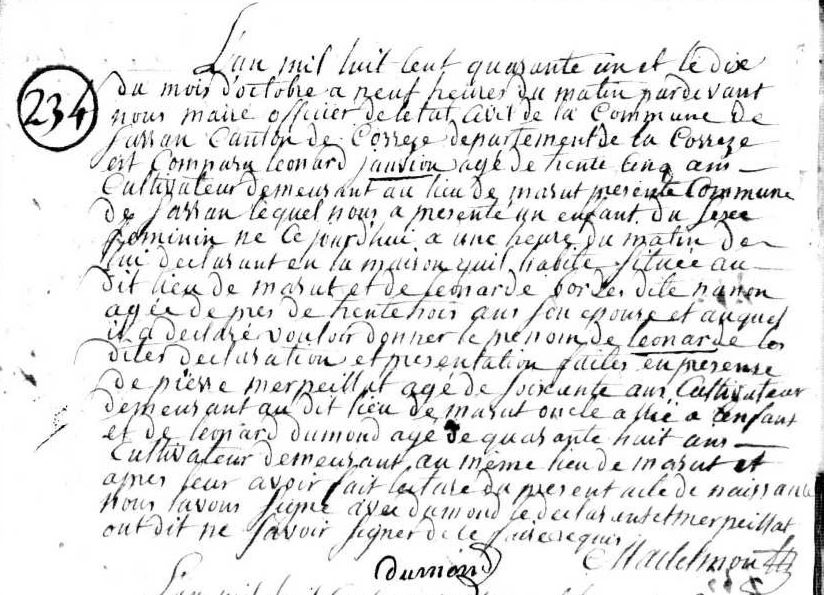 L'an mil huit cent quarante un et le dix
du mois d'octobre a neuf heures du matin pardevant
nous maire officier de letat civil de la Commune de
Sarran Canton de Correze departement de la Correze
est Comparu leonard jauvion agé de trente cinq ans
Cultivateur demeurant au lieu de masut presente Commune
de Sarran lequel nous a presenté un enfant du sexe
feminin né ce jourd'hui a une heure du matin de
lui declarant en la maison quil habite située au
dit lieu de masut et de leonarde bordes dite nanon
agée de pres de trente trois ans son epouse et auquel
il a declaré vouloir donner le prenom de leonarde les
dites declaration et presentation faites en presence
de pierre merpeillat agé de soixante ans Cultivateur
demeurant au dit lieu de masut oncle allié a l'enfant
et de leonard dumond agé de quarante huit ans
Cultivateur demeurant au même lieu de masut et
apres leur avoir fait lecture du present acte de naissance
nous lavons signé avec dumond le declarant et merpeillat
ont dit ne savoir signer de ce faire requis
dumond
234